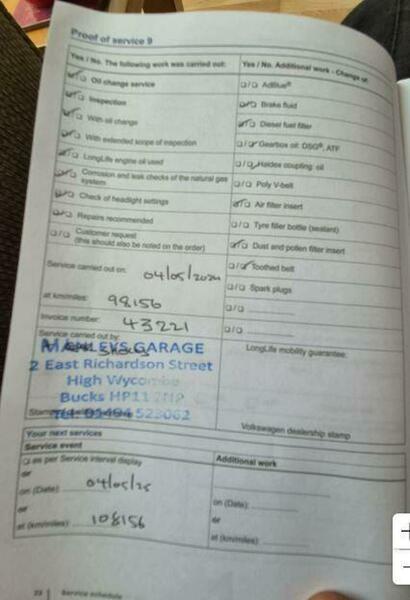 Proof of service 9
Yes / No. The following work was carried out:
Oil change service
Inspection
With oil change
With extended scope of inspection
LongLife engine oil used
Corrosion and leak checks of the natural gas system
Check of headlight settings
Repairs recommended
Customer request
(this should also be noted on the order)
Yes / No. Additional work - Change of:
AdBlue®
Brake fluid
Diesel fuel filter
Gearbox oil: DSG®, ATF
Haldex coupling: oil
Poly V-belt
Air filter insert
Tyre filler bottle (sealant)
Dust and pollen filter insert
Toothed belt
Spark plugs
Service carried out on: 04/05/2024
at km/miles: 98156
Invoice number: 43221
Service carried out by:
GARAGE
2 East Richardson Street
High Wycombe
Bucks HP11
523062
LongLife mobility guarantee:
Volkswagen dealership stamp
Your next services
Service event
as per Service interval display
or
on (Date): 04/05/25
or
at (km/miles): 108156
Additional work
on (Date):
or
at (km/miles):
Service schedule